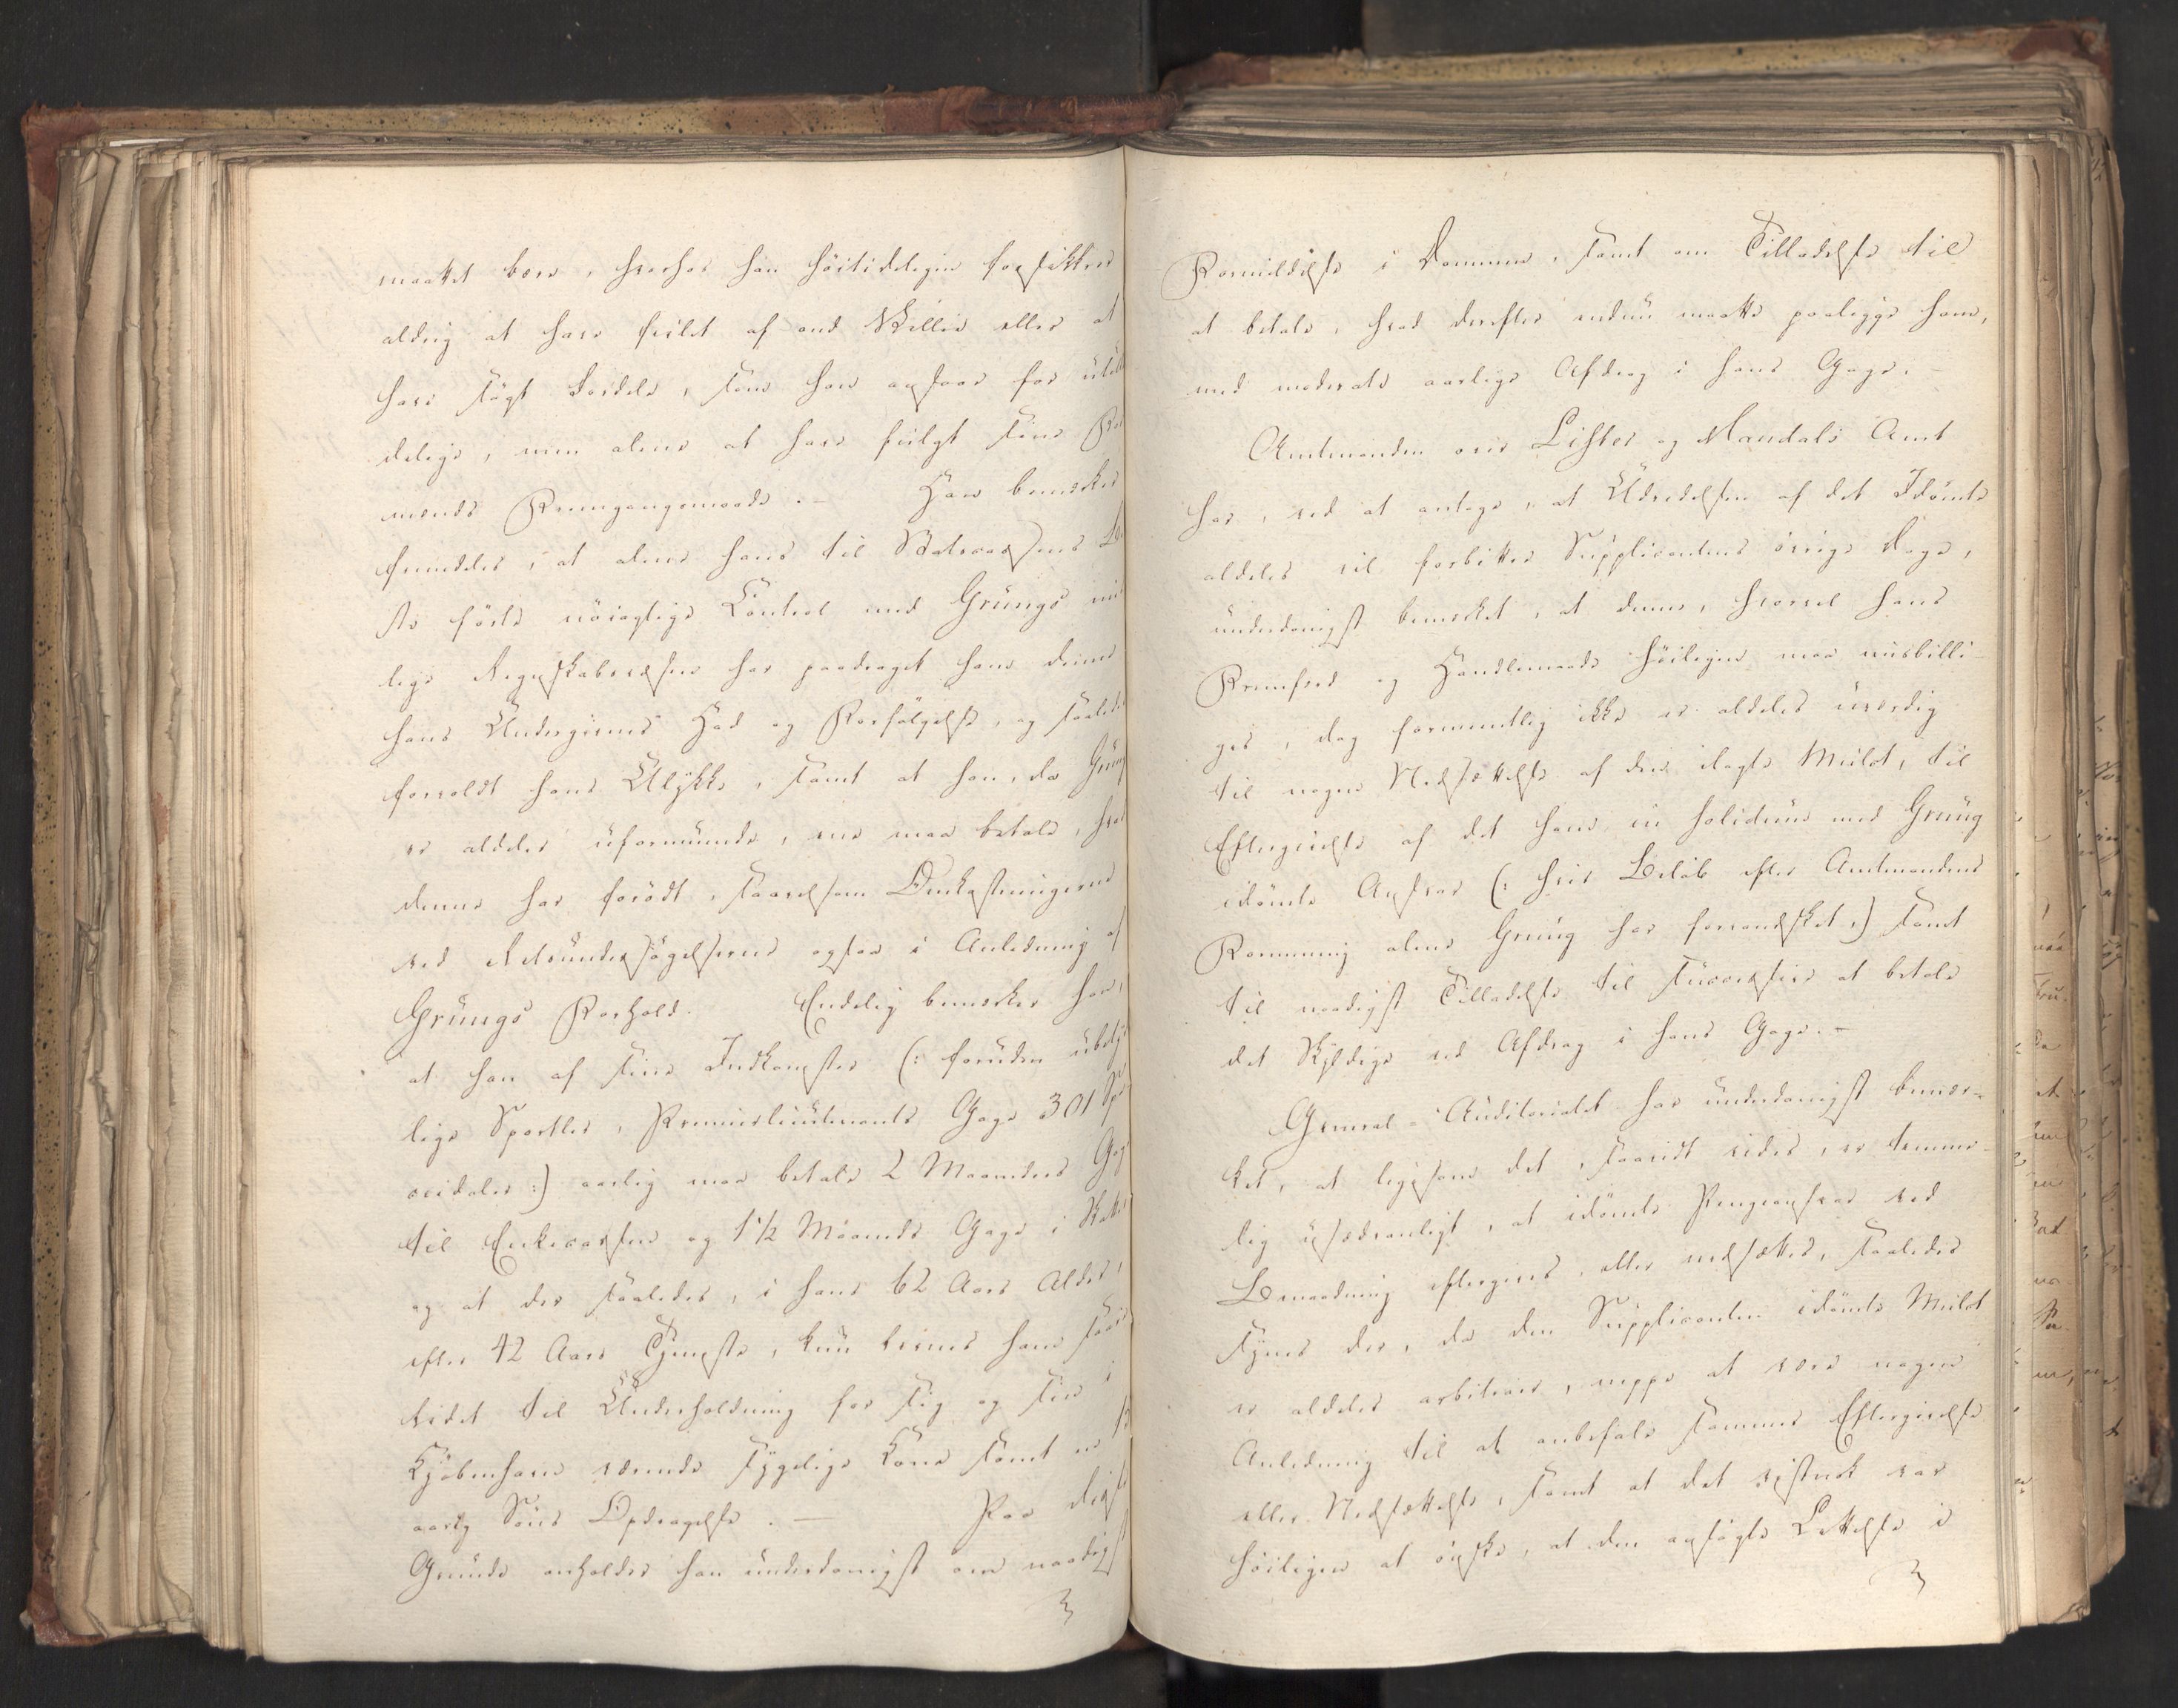 maattet bære, hvorhos han höitideligen forsikkrer
aldrig at have feilet af ond Villie eller at
have sögt Fordele, som han ansaae for utilla-
delige, men alene at have fulgt sine For-
mænds Fremgangsmaade. – Han bemærker
fremdeles, at alene hans til Statscassens Be-
ste förte nöiagtige Control med Grüngs
lige Regnskabsvæsen har paadraget ham denne
hans Undergivnes Had og Forfölgelse, og saaledes
forvoldt hans Ulÿkke, samt at han, da Grüng
er aldeles uformuende, ene maa betale, hvad
denne har forödt, saavelsom Omkostningerne
ved Retsundersögelserne ogsaa i Anledning af
Grüngs Forhold. Endelig bemærker han,
at han af sine Indkomster (: foruden ubety-
lige Sportler, Premierlieutenants Gage 301 Spe-
ciedaler :) aarlig maa betale 2 Maaneders Gage
til Enkecassen og 1½ Maaneds Gage i Skatter
og at der saaledes, i hans 62 Aars Alder,
efter 42 Aars Tjeneste, kun levnes ham saare
lidet til Underholdning for sig og sin i
Kjöbenhavn værende sÿgelige Kone samt en
aarig Söns Opdragelse. – Paa disse
Grunde anholder han underdanigst om naadigst
Formildelse i Dommen, samt om Tilladelse til
at betale, hvad derefter endnu maatte paaligge ham,
med moderate aarlige Afdrag i hans Gage. –
Amtmanden over Lister og Mandals Amt
har, ved at antage, at Udredelsen af det Idömte
aldeles vil forbittre Supplicantens övrige Dage,
underdanigst bemærket, at denne, hvorvel hans
Fremfærd og Handlemaade höiligen maa misbilli-
ges, dog formeentlig ikke er aldeles uværdig
til nogen Nedsættelse af den ilagte Mulct, til
Eftergivelse af det ham in solidum med Grüng
idömte Ansvar (: hvis Belöb efter Amtmandens
Formening alene Grüng har foraarsaget :) samt
til naadigst Tilladelse til successive at betale
det Skÿldige ved Afdrag i hans Gage. –
General-Auditoriatet har underdanigst bemær-
ket, at ligesom det, saavidt vides, er temme-
lig usædvanligt, at idömte Pengeansvar ved
Benaadning eftergives, eller nedsættes, saaledes
sÿnes der, da den Supplicanten idömte Mulct
er aldeles arbitrair, neppe at være nogen
Anledning til at anbefale sammes Eftergivelse
eller Nedsættelse, samt at det vistnok var
höiligen at önske, at den ansögte Lettelse i